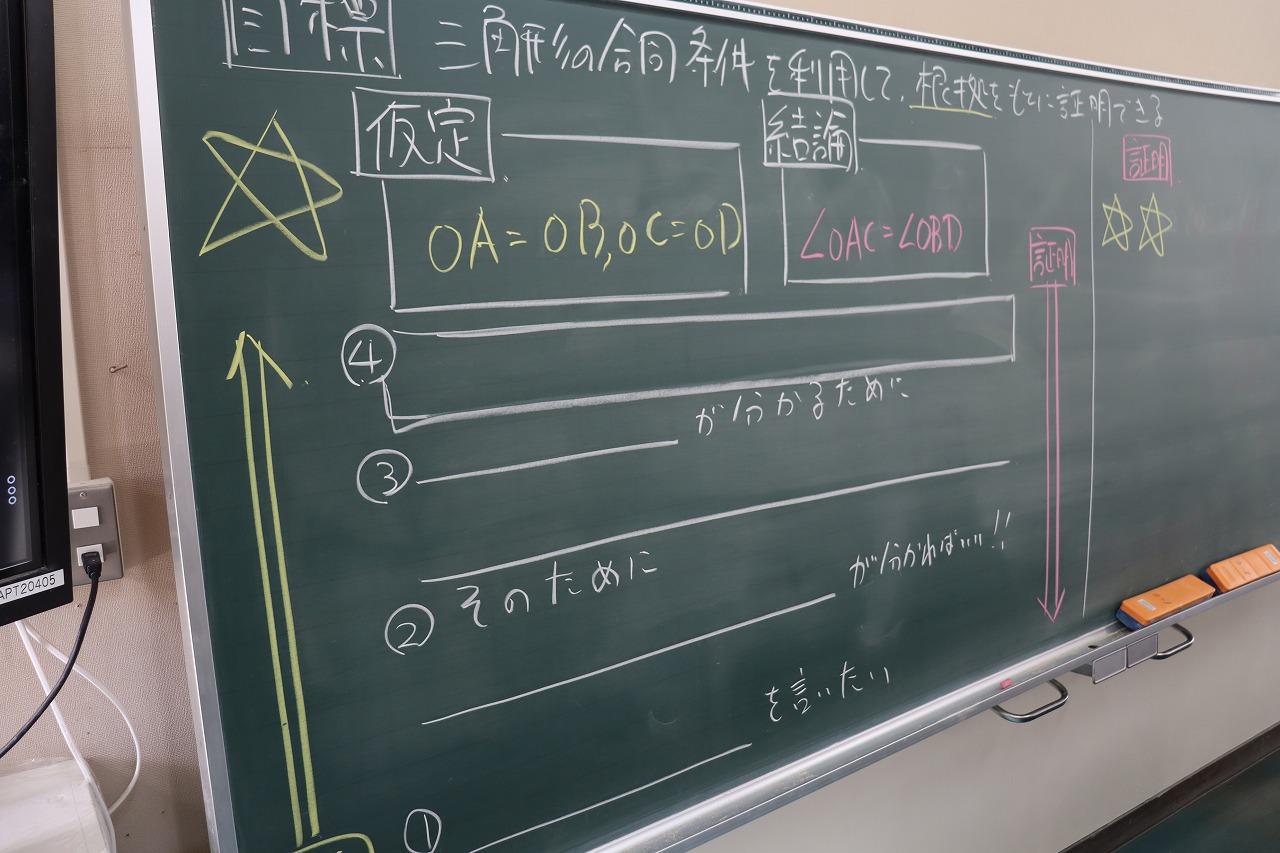 目標 三角形の合同条件を利用して、根拠をもとに証明できる
仮定
OA=OB, OC=OD
結論
∠OAC=∠OBD
④
が分かるために
③
が分かればいい!!
② そのために
を言いたい
①
証明
証明
APT20405